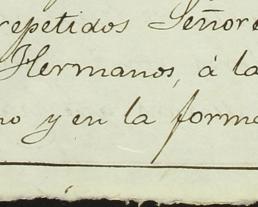 repetidos Señore
Hermanos, á la
no y en la forma